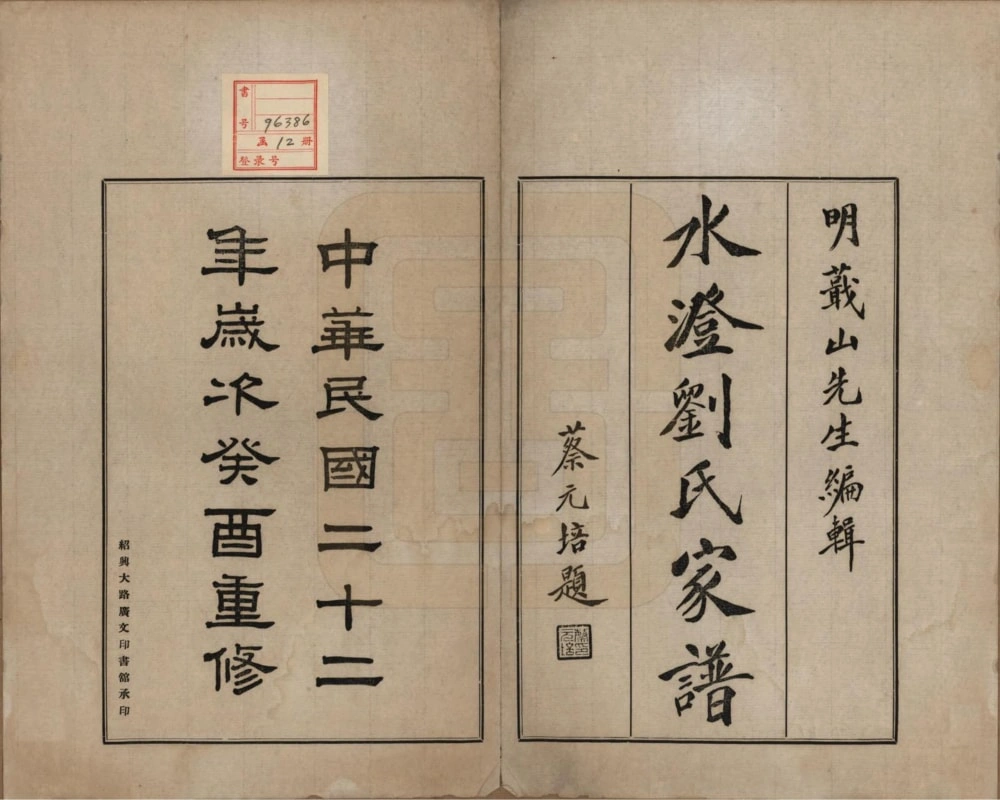 明蕺山先生編輯
水澄劉氏家譜
蔡元培題
中華民國二十二
年歲次癸酉重修
紹興大路廣文印書館承印
書號
96386
函 12 册
登录号